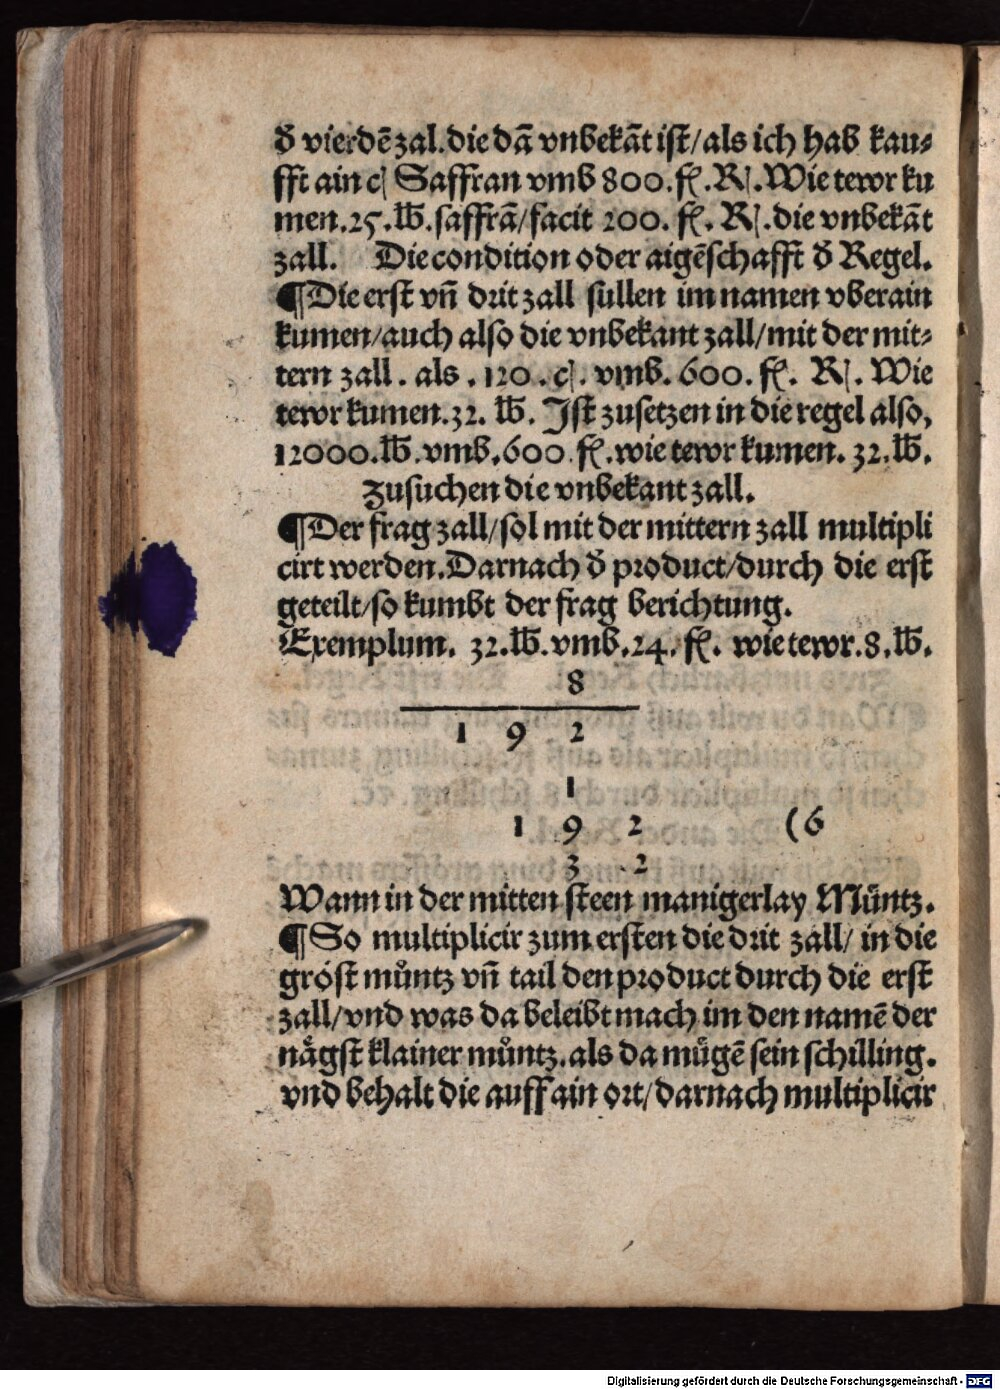 d̄ vierdē zal. die dā vnbekāt ist/ als ich hab kau⸗
fft ain cꝭ Saffran vmb 800. fl. Rꝭ. Wie tewr ku
men. 25. lb. saffrā/ facit 200. fl. Rꝭ. die vnbekāt
zall. Die condition oder aigēschafft d̄ Regel.
¶ Die erst vn̄ drit zall sullen im namen vberain
kumen/ auch also die vnbekant zall/ mit der mit⸗
tern zall. als. 120. cꝭ. vmb. 600. fl. Rꝭ. Wie
tewr kumen. 32. lb. Ist zusetzen in die regel also,
12000. lb. vmb. 600. fl. wie tewr kumen. 32. lb.
zusuchen die vnbekant zall.
¶ Der frag zall/ sol mit der mittern zall multipli
cirt werden. Darnach d̄ product/ durch die erst
geteilt/ so kumbt der frag berichtung.
Exemplum. 32. lb. vmb. 24. fl. wie tewr. 8. lb.
8
1 9 2
1
1 9 2 (6
3 2
Wann in der mitten steen manigerlay Müntz.
¶ So multiplicir zum ersten die drit zall/ in die
gröst můntz vn̄ tail den product durch die erst
zall/ vnd was da beleibt mach im den namē der
nägst klainer můntz. als da mügē sein schilling.
vnd behalt die auff ain ort/ darnach multiplicir
Digitalisierung gefördert durch die Deutsche Forschungsgemeinschaft - DFG